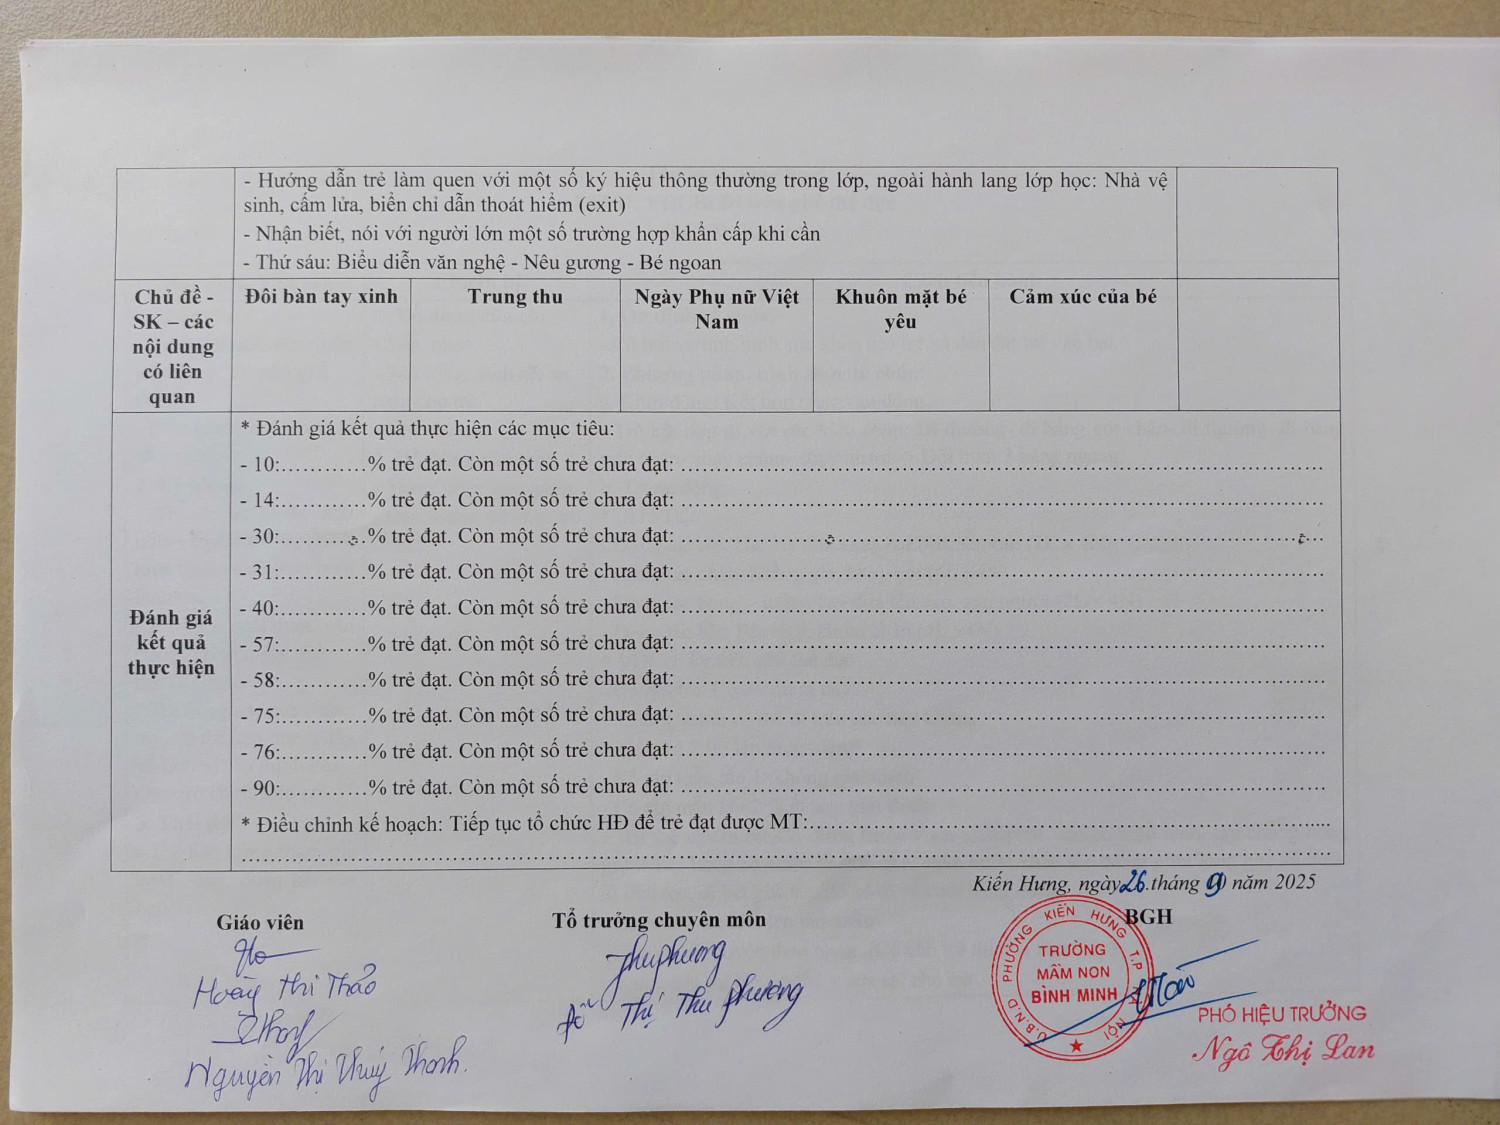 - Hướng dẫn trẻ làm quen với một số ký hiệu thông thường trong lớp, ngoài hành lang lớp học: Nhà vệ
sinh, cấm lửa, biển chỉ dẫn thoát hiểm (exit)
- Nhận biết, nói với người lớn một số trường hợp khẩn cấp khi cần
- Thứ sáu: Biểu diễn văn nghệ - Nêu gương - Bé ngoan
Chủ đề -
SK – các
nội dung
có liên
quan
Đôi bàn tay xinh
Trung thu
Ngày Phụ nữ Việt
Nam
Khuôn mặt bé
yêu
Cảm xúc của bé
Đánh giá
kết quả
thực hiện
* Đánh giá kết quả thực hiện các mục tiêu:
- 10:............% trẻ đạt. Còn một số trẻ chưa đạt: ............
- 14:............% trẻ đạt. Còn một số trẻ chưa đạt: ............
- 30:............% trẻ đạt. Còn một số trẻ chưa đạt: ............
- 31:............% trẻ đạt. Còn một số trẻ chưa đạt: ............
- 40:............% trẻ đạt. Còn một số trẻ chưa đạt: ............
- 57:............% trẻ đạt. Còn một số trẻ chưa đạt: ............
- 58:............% trẻ đạt. Còn một số trẻ chưa đạt: ............
- 75:............% trẻ đạt. Còn một số trẻ chưa đạt: ............
- 76:............% trẻ đạt. Còn một số trẻ chưa đạt: ............
- 90:............% trẻ đạt. Còn một số trẻ chưa đạt: ............
* Điều chỉnh kế hoạch: Tiếp tục tổ chức HĐ để trẻ đạt được MT:............
Kiến Hưng, ngày 26 tháng 9 năm 2025
Giáo viên
Tổ trưởng chuyên môn
BGH
Hoàng Thị Thảo
Nguyễn Thị Thúy Thanh.
Thuphuong
Đỗ Thị Thu Phương
U.B.N.D PHƯỜNG KIẾN HƯNG T.P HÀ NỘI
TRƯỜNG
MẦM NON
BÌNH MINH
PHÓ HIỆU TRƯỞNG
Ngô Thị Lan